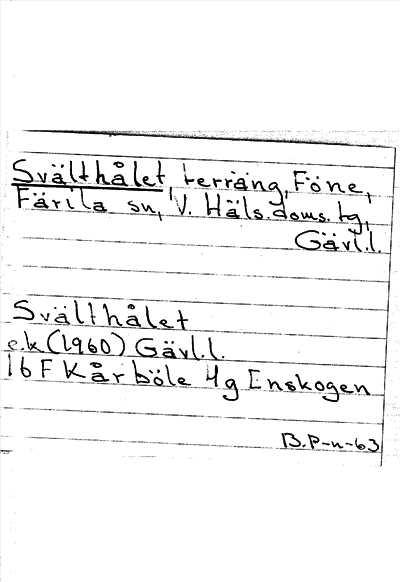 Svälthålet, terräng, Föne,
Färila sn, V. Häls. doms. tg,
Gävl.l.
Svälthålet
e.k (1960) Gävl.l.
16 F Kårböle 4g Enskogen
B.P-n-63